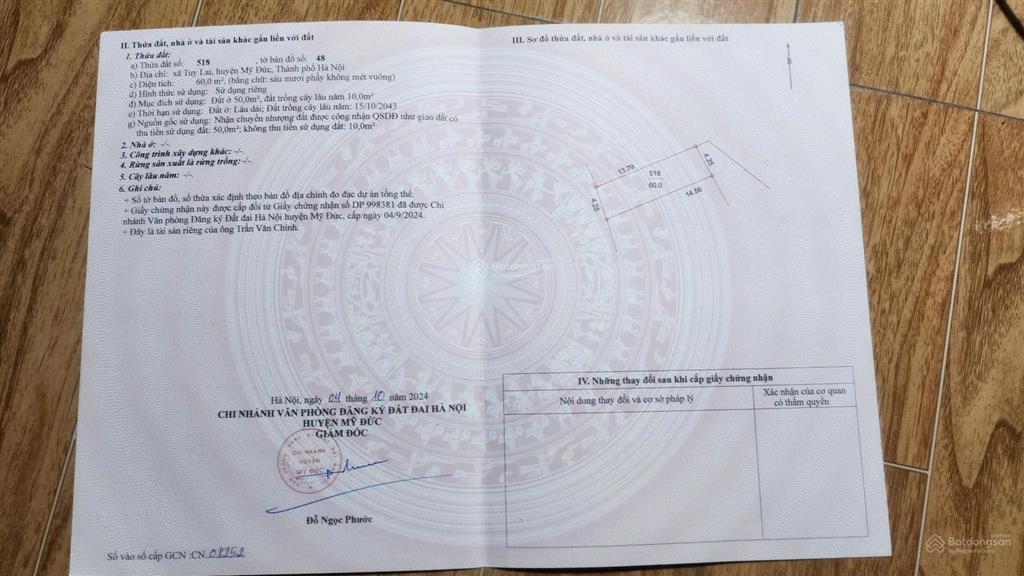 II. Thửa đất, nhà ở và tài sản khác gắn liền với đất
1. Thửa đất:
a) Thửa đất số: 518 , tờ bản đồ số: 48
b) Địa chỉ: xã Tuy Lai, huyện Mỹ Đức, Thành phố Hà Nội
c) Diện tích: 60,0 m², (bằng chữ: sáu mươi phẩy không mét vuông)
d) Hình thức sử dụng: Sử dụng riêng
đ) Mục đích sử dụng: Đất ở 50,0m², đất trồng cây lâu năm 10,0m²
e) Thời hạn sử dụng: Đất ở: Lâu dài; Đất trồng cây lâu năm: 15/10/2043
g) Nguồn gốc sử dụng: Nhận chuyển nhượng đất được công nhận QSDĐ như giao đất có
thu tiền sử dụng đất: 50,0m²; không thu tiền sử dụng đất: 10,0m²
2. Nhà ở: -/-
3. Công trình xây dựng khác: -/-
4. Rừng sản xuất là rừng trồng: -/-
5. Cây lâu năm: -/-
6. Ghi chú:
+ Số tờ bản đồ, số thửa xác định theo bản đồ địa chính đo đạc dự án tổng thể.
+ Giấy chứng nhận này được cấp đổi từ Giấy chứng nhận số DP 998381 đã được Chi
nhánh Văn phòng Đăng ký Đất đai Hà Nội huyện Mỹ Đức, cấp ngày 04/9/2024.
+ Đây là tài sản riêng của ông Trần Văn Chinh.
Hà Nội, ngày 04 tháng 10 năm 2024
CHI NHÁNH VĂN PHÒNG ĐĂNG KÝ ĐẤT ĐAI HÀ NỘI
HUYỆN MỸ ĐỨC
GIÁM ĐỐC
CHI NHÁNH
HUYỆN
MỸ ĐỨC
Đỗ Ngọc Phước
Số vào sổ cấp GCN :CN.
III. Sơ đồ thửa đất, nhà ở và tài sản khác gắn liền với đất
B
13.79
4.25
518
60.0
14.56
4.25
IV. Những thay đổi sau khi cấp giấy chứng nhận
Nội dung thay đổi và cơ sở pháp lý
Xác nhận của cơ quan
có thẩm quyền
Batdongsan
Batdongsan
by PropertyGuru